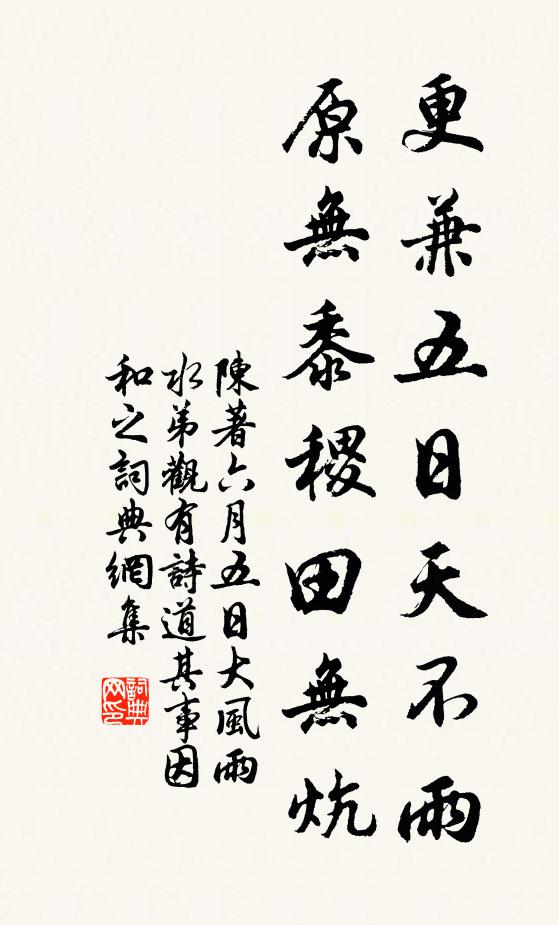 更兼五日天不雨
原無黍稷田無炕
陳著六月五日大風雨
水弟觀有詩道其事因
和之詞典網集
詞典網印